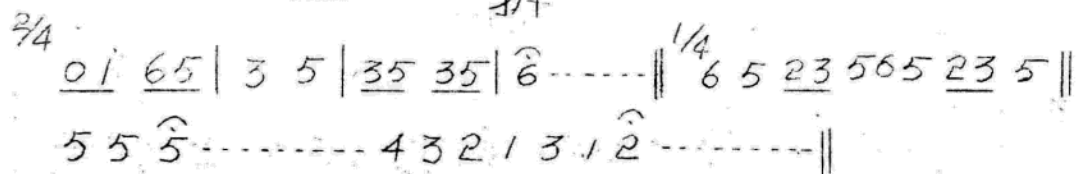 2/4 0i 65 | 3 5 | 35 35 | 6 ------ ‖ 1/4 6 5 23 565 23 5 ‖
5 5 5 --------- 4 3 2 1 3 1 2 --------- ‖